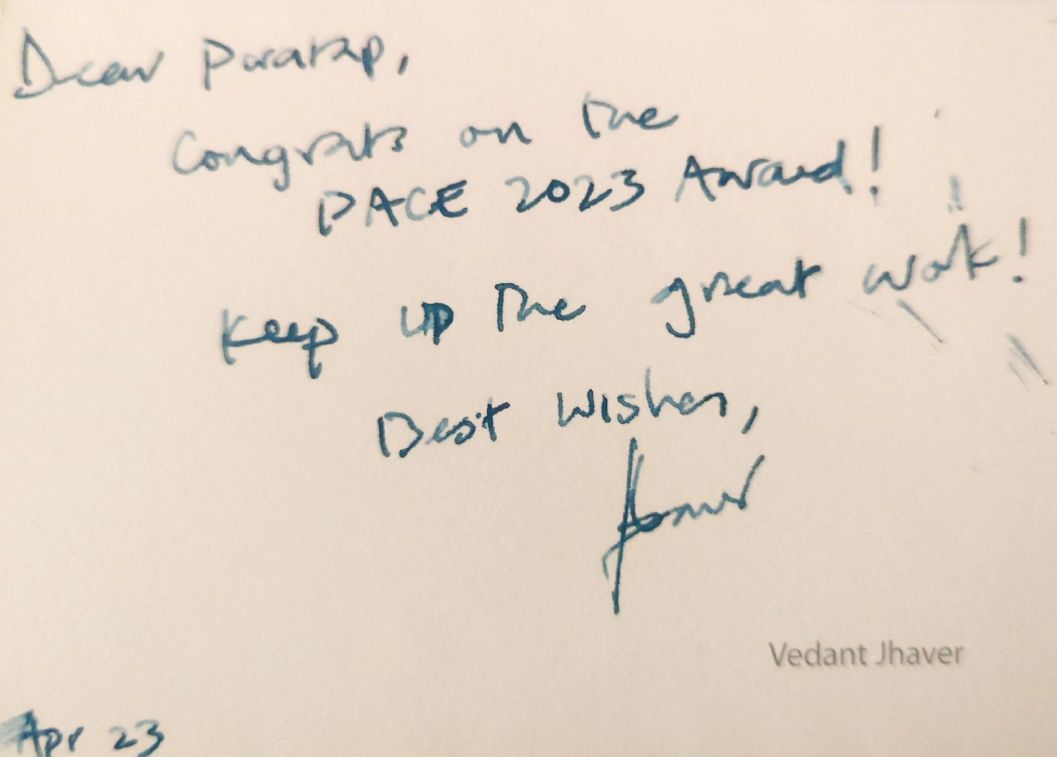 Dear Paratap,
Congrats on the
PACE 2023 Award!
Keep up the great work!
Best Wishes,
Vedant Jhaver
Apr 23